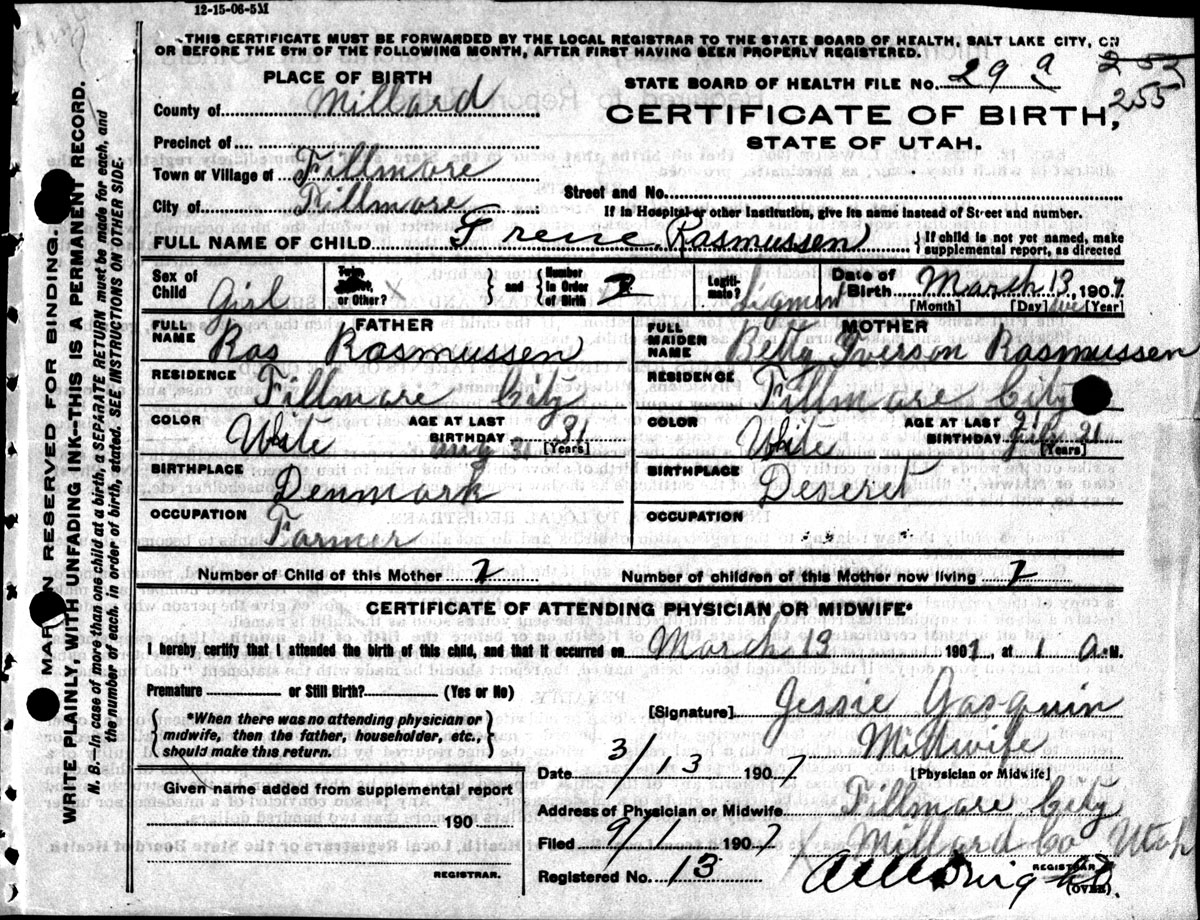 12-15-06-5M
THIS CERTIFICATE MUST BE FORWARDED BY THE LOCAL REGISTRAR TO THE STATE BOARD OF HEALTH, SALT LAKE CITY, ON
OR BEFORE THE 5TH OF THE FOLLOWING MONTH, AFTER FIRST HAVING BEEN PROPERLY REGISTERED.
PLACE OF BIRTH
County of Millard
Precinct of
Town or Village of Fillmore
City of Fillmore
STATE BOARD OF HEALTH FILE NO. 29 a 252
255
CERTIFICATE OF BIRTH,
STATE OF UTAH.
Street and No.
If in Hospital or other Institution, give its name instead of Street and number.
FULL NAME OF CHILD Irene Rasmussen { If child is not yet named, make supplemental report, as directed
Sex of Child Girl
or Other? X and Number in Order of Birth 2
Legiti-mate?
Date of Birth March 13, 1907
[Month] [Day] [Year]
FATHER
FULL NAME Ras Rasmussen
RESIDENCE Fillmore City
COLOR Wite AGE AT LAST BIRTHDAY 31 [Years]
BIRTHPLACE Denmark
OCCUPATION Farmer
MOTHER
FULL MAIDEN NAME Betty Iverson Rasmussen
RESIDENCE Fillmore City
COLOR Wite AGE AT LAST BIRTHDAY 21 [Years]
BIRTHPLACE Deseret
OCCUPATION
Number of Child of this Mother 2 Number of children of this Mother now living 2
CERTIFICATE OF ATTENDING PHYSICIAN OR MIDWIFE*
I hereby certify that I attended the birth of this child, and that it occurred on March 13 1907, at 1 A. M.
Premature or Still Birth? (Yes or No)
*When there was no attending physician or
midwife, then the father, householder, etc.,
should make this return.
Given name added from supplemental report
190
REGISTRAR.
[Signature] Jessie Gasquin
Midwife
Date 3/13 1907 [Physician or Midwife]
Address of Physician or Midwife Fillmore City
Filed 9/1 1907 X Millard Co Utah
Registered No. 13 REGISTRAR
(OVER)
MARGIN RESERVED FOR BINDING.
WRITE PLAINLY, WITH UNFADING INK—THIS IS A PERMANENT RECORD.
N. B.—In case of more than one child at a birth, a SEPARATE RETURN must be made for each, and
the number of each, in order of birth, stated. SEE INSTRUCTIONS ON OTHER SIDE.